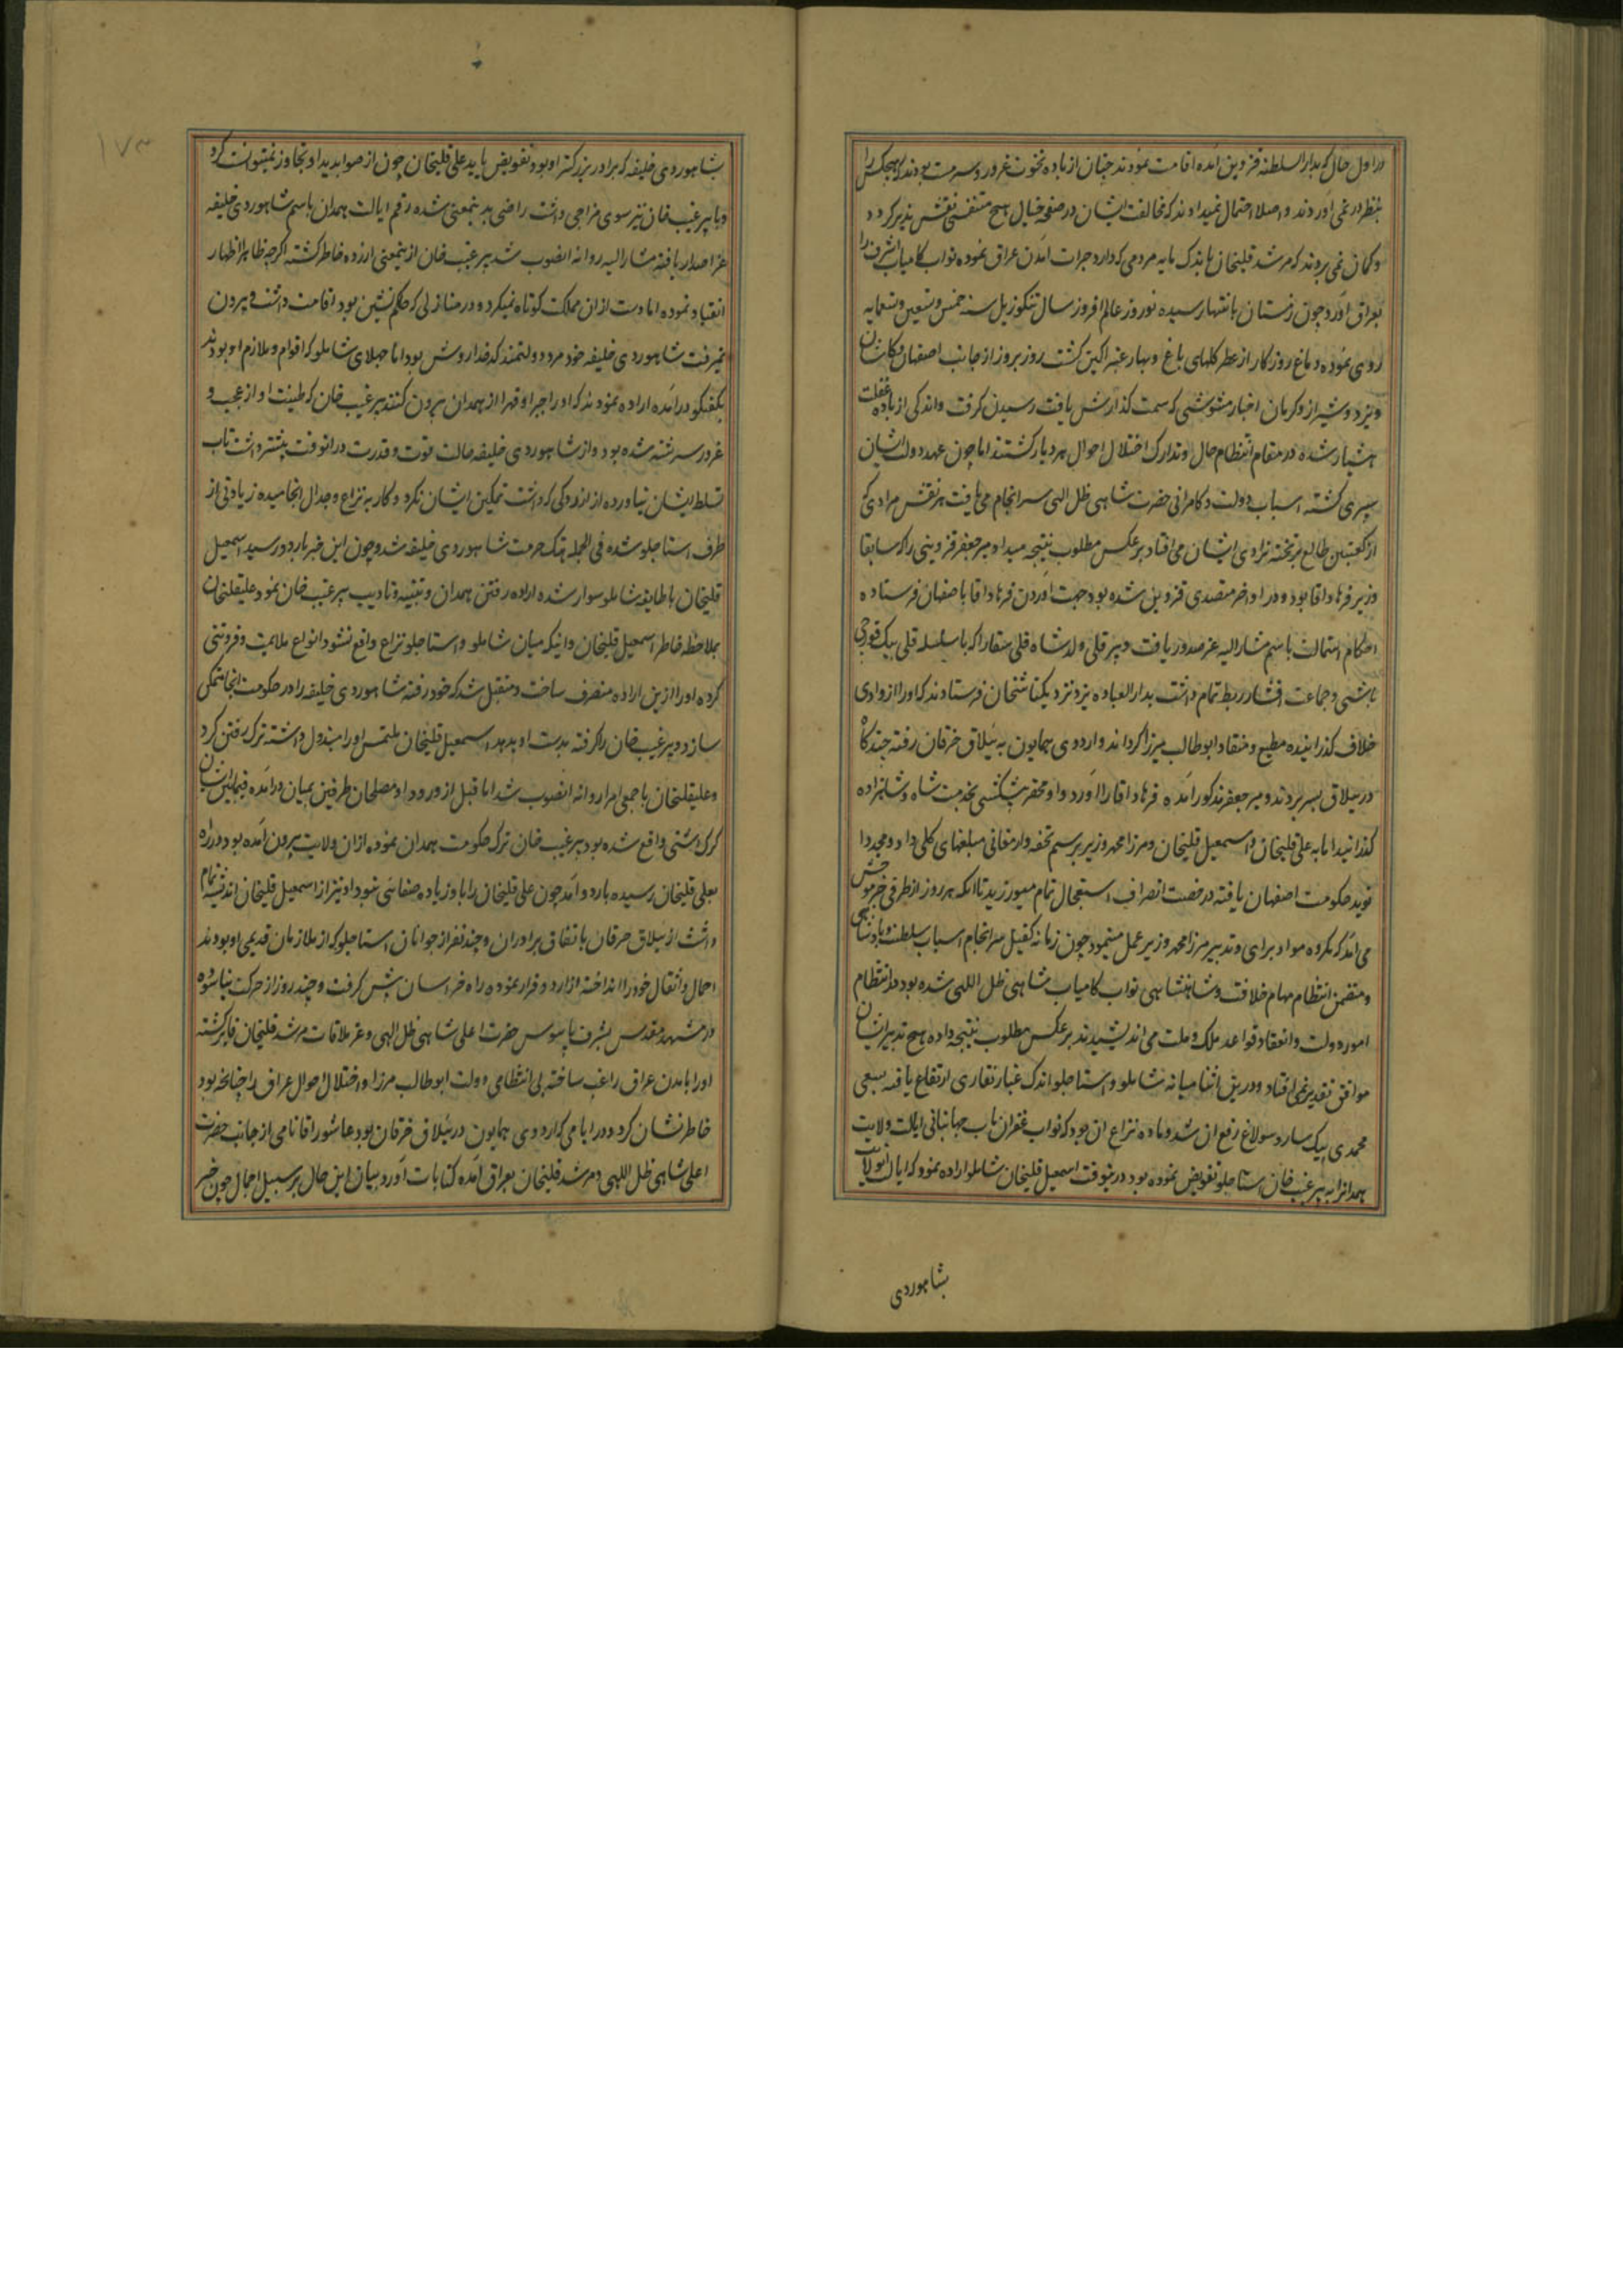 در اول حال که بدار السلطنه قزوین آمده اقامت نمودند چنان از باده نخوت غرور و سرمست بودند که هیچکس را
بنظر در نمی آوردند و اصلا احتمال نمیدادند که مخالفت ایشان در صفحه خیال هیچ متنفسی نقش پذیر کردد
و کمان نمی بردند که مرشد قلیخان باندک مایه مردمی که دارد جرات آمدن عراق نموده نواب کامیاب اشرف را
بعراق آورد چون زمستان بانتها رسیده نوروز عالم افروز سال تنکوزیل سنه خمس و تسعین و تسعمایه
روی نموده دماغ روزکار از عطر کلهای باغ و بهار عنبر اکین کشت روز بروز از جانب اصفهان و کاشان
و یزد و شیراز و کرمان اخبار مشوشی که سمت کذارش یافت رسیدن کرفت و اندکی از باده غفلت
هشیار شده در مقام انتظام حال و تدارک اختلال احوال هر دیار کشتند اما چون عهد دولت ایشان
سپری کشته اسباب دولت و کامرانی حضرت شاهی ظل الهی سرانجام می یافت هر نقش مرادی که
از کعبتین طالع بر تخته نرادی ایشان می افتاد بر عکس مطلوب نتیجه میداد میر جعفر قزوینی را که سابقا
وزیر فرهاد اقا بود و در اواخر متصدی قزوین شده بود جهت آوردن فرهاد اقا باصفهان فرستاده
احکام استمالت باسم مشار الیه عز صدور یافت و پیر قلی ولد شاه قلی را که با سلسله قلی بیک قورچی
باشی و جماعت افشار ربط تمام داشت بدار العباده یزد نزد یکتاشخان فرستادند که او را از وادی
خلاف کذرانیده مطیع و منقاد ابوطالب میرزا کرداند و اردوی همایون به ییلاق خرقان رفته چند کاه
در ییلاق بسر بردند و میر جعفر مذکور آمده فرهاد اقا را آورد و او محقر پیشکشی بخدمت شاه و شاهزاده
کذرانید اما به علی قلیخان و اسمعیل قلیخان و میرزا محمد وزیر برسم تحفه و ارمغانی مبلغهای کلی داد و مجددا
نوید حکومت اصفهان یافته در خصت انصراف استعجال تمام میورزید تا آنکه هر روز از طرفی خبر موحش
می آمد کرکروه مواد برای و تدبیر میرزا محمد وزیر عمل مینمود چون زمانه کفیل سرانجام اسباب سلطنت و پادشاهی
و متضمن انتظام مهام خلافت و شاهنشاهی نواب کامیاب شاهی ظل اللهی شده بود در انتظام
امور دولت و انعقاد قواعد ملک و ملت می اندیشیدند بر عکس مطلوب نتیجه داده هیچ تدبیر ایشان
موافق تقدیر نمی افتاد و در ین اثنا میانه شاملو و استاجلو اندک غبار نقاری ارتفاع یافته بسعی
محمدی بیک سارو سولاغ رفع ان شد و ماده نزاع ان بود که نواب غفران ماب جهانبانی ایالت ولایت
همدانرا به پیر غیب خان استاجلو تفویض نموده بود درینوقت اسمعیل قلیخان شاملو اراده نمود که ایالت انولایت
بشاهوردی
بشاهوردی خلیفه که برادر بزرکتر او بود تفویض یابد علی قلیخان چون از صوابدید او تجاوز نمیتوانست کرد
و با پیر غیب خان نیز سوی مزاجی داشت راضی بدینمعنی شده رقم ایالت همدان باسم شاهوردی خلیفه
عز اصدار یافته مشار الیه روانه انصوب شد پیر غیب خان از ینمعنی ازرده خاطر کشته اکرچه ظاهر اظهار
انقیاد نموده اما دست از ان مملکت کوتاه نمیکرد و در منازلی که حاکم نشین بود اقامت داشت و بیرون
نمیرفت شاهوردی خلیفه خود مرد دولتمند کدخدا روش بود اما جهلای شاملو که اقوام و ملازم او بودند
بکفتکو در آمده اراده نمودند که او را جبرا و قهرا از همدان بیرون کنند پیر غیب خان که طینت او از عجب و
غرور سرشته شده بود و از شاهوردی خلیفه حالت قوت و قدرت در انوقت بیشتر داشت تاب
تسلط ایشان نیاورده از ازردکی که داشت تمکین ایشان نکرد و کار به نزاع و جدال انجامیده زیادتی از
طرف استاجلو شده فی الجمله هتک حرمت شاهوردی خلیفه شد و چون این خبر باردو رسید اسمعیل
قلیخان با طایفه شاملو سوار شده اراده رفتن همدان و تنبیه و تادیب پیر غیب خان نمود علیقلیخان
بملاحظه خاطر اسمعیل قلیخان و اینکه میان شاملو و استاجلو نزاع واقع نشود انواع ملایمت و فروتنی
کرده او را از ین اراده منصرف ساخت و متقبل شد که خود رفته شاهوردی خلیفه را در حکومت انجا متمکن
سازد و پیر غیب خان را کرفته بدست او بدهد اسمعیل قلیخان ملتمس او را مبذول داشته ترک رفتن کرد
و علیقلیخان با جمعی امرا روانه انصوب شد اما قبل از ورود او مصلحان طرفین بمیان در آمده فیمابین ایشان
کرک اشتی واقع شده بود پیر غیب خان ترک حکومت همدان نموده از ان ولایت بیرون آمده بود در راه
بعلی قلیخان رسیده باردو آمد چون علی قلیخان را با او زیاده صفائی نبود او نیز از اسمعیل قلیخان اندیشه تمام
داشت از ییلاق خرقان باتفاق برادران و چند نفر از جوانان استاجلو که از ملازمان قدیمی او بودند
احمال و اثقال خود را انداخته از اردو فرار نموده راه خراسان پیش کرفت و چند روز از حرکت نیاسوده
در مشهد مقدس بشرف پابوس حضرت اعلی شاهی ظل الهی و عز ملاقات مرشد قلیخان فایز کشته
او را بامدن عراق راغب ساخته بی انتظامی دولت ابوطالب میرزا و اختلال احوال عراق را چنانچه بود
خاطر نشان کرد و در ایامی که اردوی همایون در ییلاق خرقان بود عاشور اقا نامی از جانب حضرت
اعلی شاهی ظل اللهی و مرشد قلیخان بعراق آمده کتابات آورد و بیان این حال بر سبیل اجمال چون خبر